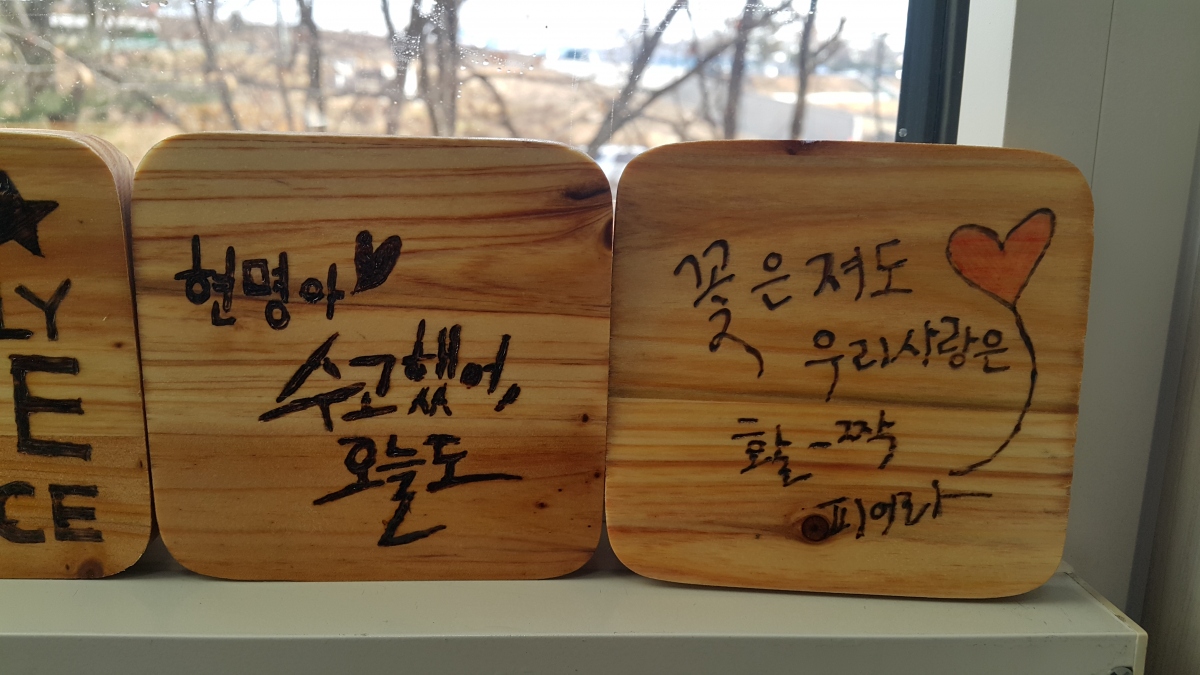 LY
E
CE
현명아
수고했어,
오늘도
꽃은 져도
우리사랑은
활-짝
피어라